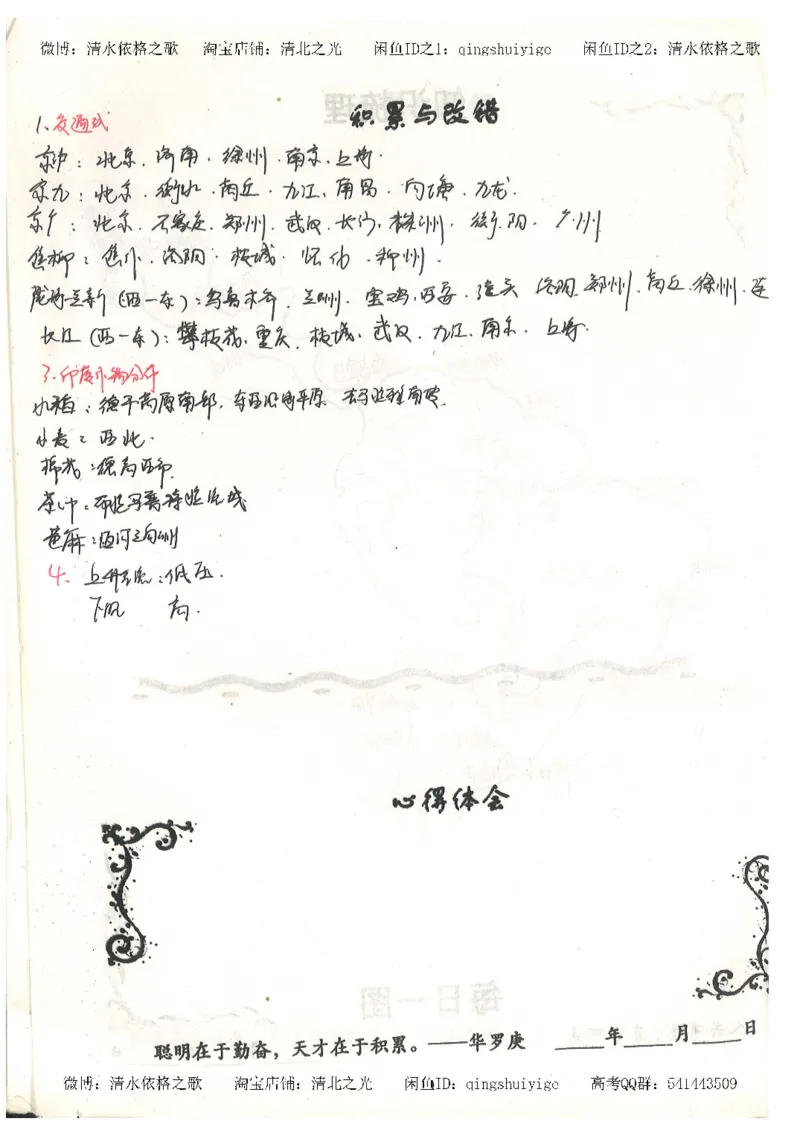 微博：清水依格之歌 淘宝店铺：清北之光 闲鱼ID之1：qingshuiyige 闲鱼ID之2：清水依格之歌
积累与改错
1.交通线
京沪：北京．济南．徐州．南京．上海．
京九：北京．衡水．商丘．九江．南昌．向塘．九龙．
京广：北京．石家庄．郑州．武汉．长沙．株洲．衡阳．广州
焦柳：焦作．洛阳．枝城．怀化．柳州．
陇海兰新(西一东)：乌鲁木齐．兰州．宝鸡．西安．潼关 洛阳．郑州．商丘．徐州．连
长江(西一东)：攀枝花．重庆．枝城．武汉．九江．南京．上海．
3.印度作物分布
水稻：德干高原南部，东西沿海平原
小麦：西北．
棉花：德高西部
茶叶：
黄麻：恒河三角洲
4. 上升气流：低压．
下沉 高．
心得体会
聪明在于勤奋，天才在于积累。——华罗庚 _____年_____月_____日
微博：清水依格之歌 淘宝店铺：清北之光 闲鱼ID：qingshuiyige 高考QQ群：541443509